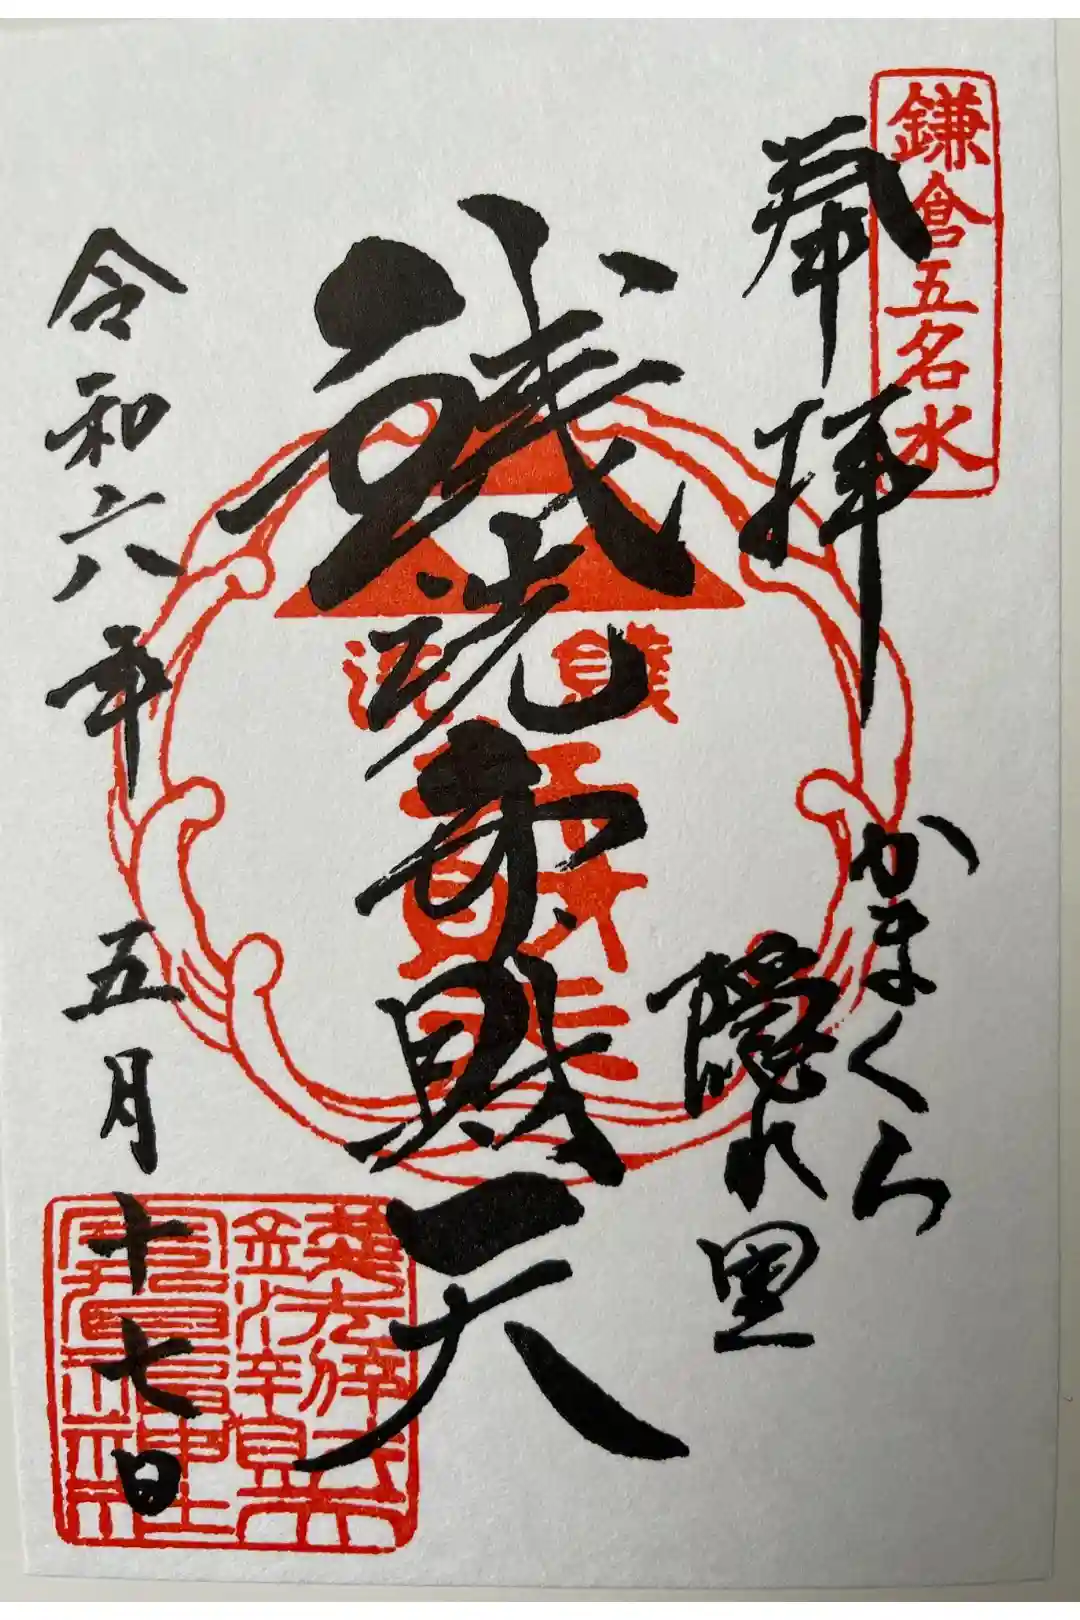 鎌倉五名水
奉拝
かまくら
隠れ里
銭洗弁財天
銭洗
令和六年五月十七日